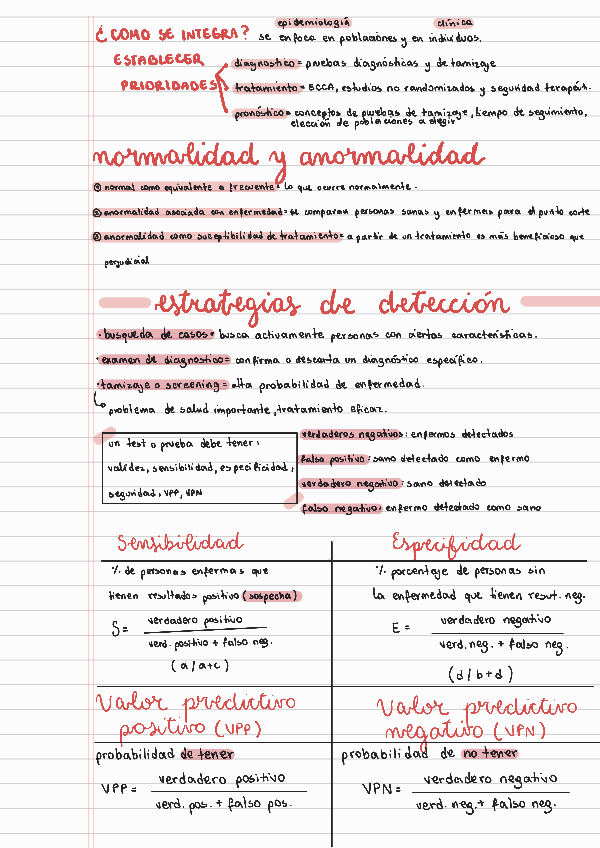 epidemiología clínica
¿COMO SE INTEGRA? se enfoca en poblaciones y en individuos.
ESTABLECER PRIORIDADES
diagnostico= pruebas diagnósticas y de tamizaje
tratamiento= ECCA, estudios no randomizados y seguridad terapéut.
pronóstico= conceptos de pruebas de tamizaje, tiempo de seguimiento,
elección de poblaciones a elegir
normalidad y anormalidad
① normal como equivalente a frecuente= lo que ocurre normalmente.
② anormalidad asociada con enfermedad= se comparan personas sanas y enfermas para el punto corte
③ anormalidad como suceptibilidad de tratamiento= a partir de un tratamiento es más beneficioso que
perjudicial
estrategias de detección
·busqueda de casos= busca activamente personas con ciertas características.
·examen de diagnostico= confirma o descarta un diagnóstico específico.
·tamizaje o screening= alta probabilidad de enfermedad.
problema de salud importante, tratamiento eficaz.
un test o prueba debe tener:
validez, sensibilidad, especificidad,
seguridad, VPP, VPN
verdaderos negativos: enfermos detectados
falso positivo: sano detectado como enfermo
verdadero negativo: sano detectado
falso negativo: enfermo detectado como sano
Sensibilidad
% de personas enfermas que
tienen resultados positivo (sospecha)
S= verdadero positivo
verd. positivo + falso neg.
(a/a+c)
Especifidad
% porcentaje de personas sin
la enfermedad que tienen resut. neg.
E = verdadero negativo
verd. neg. + falso neg.
(d/b+d)
Valor predictivo
positivo (VPP)
probabilidad de tener
VPP= verdadero positivo
verd. pos. + falso pos.
Valor predictivo
negativo (VPN)
probabilidad de no tener
VPN= verdadero negativo
verd. neg.+ falso neg.